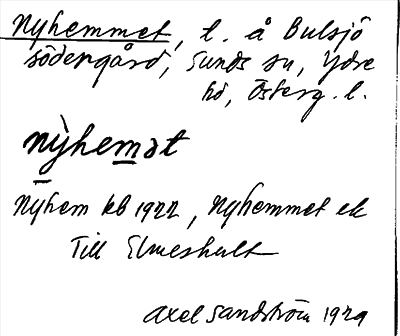 Nyhemmet, l. å Bulsjö
södergård, Sunds sn, Ydre
hd, Österg. l.
nỳhemət
Nyhem kb 1922, Nyhemmet ek
Till Elmeshult
Axel Sandström 1929